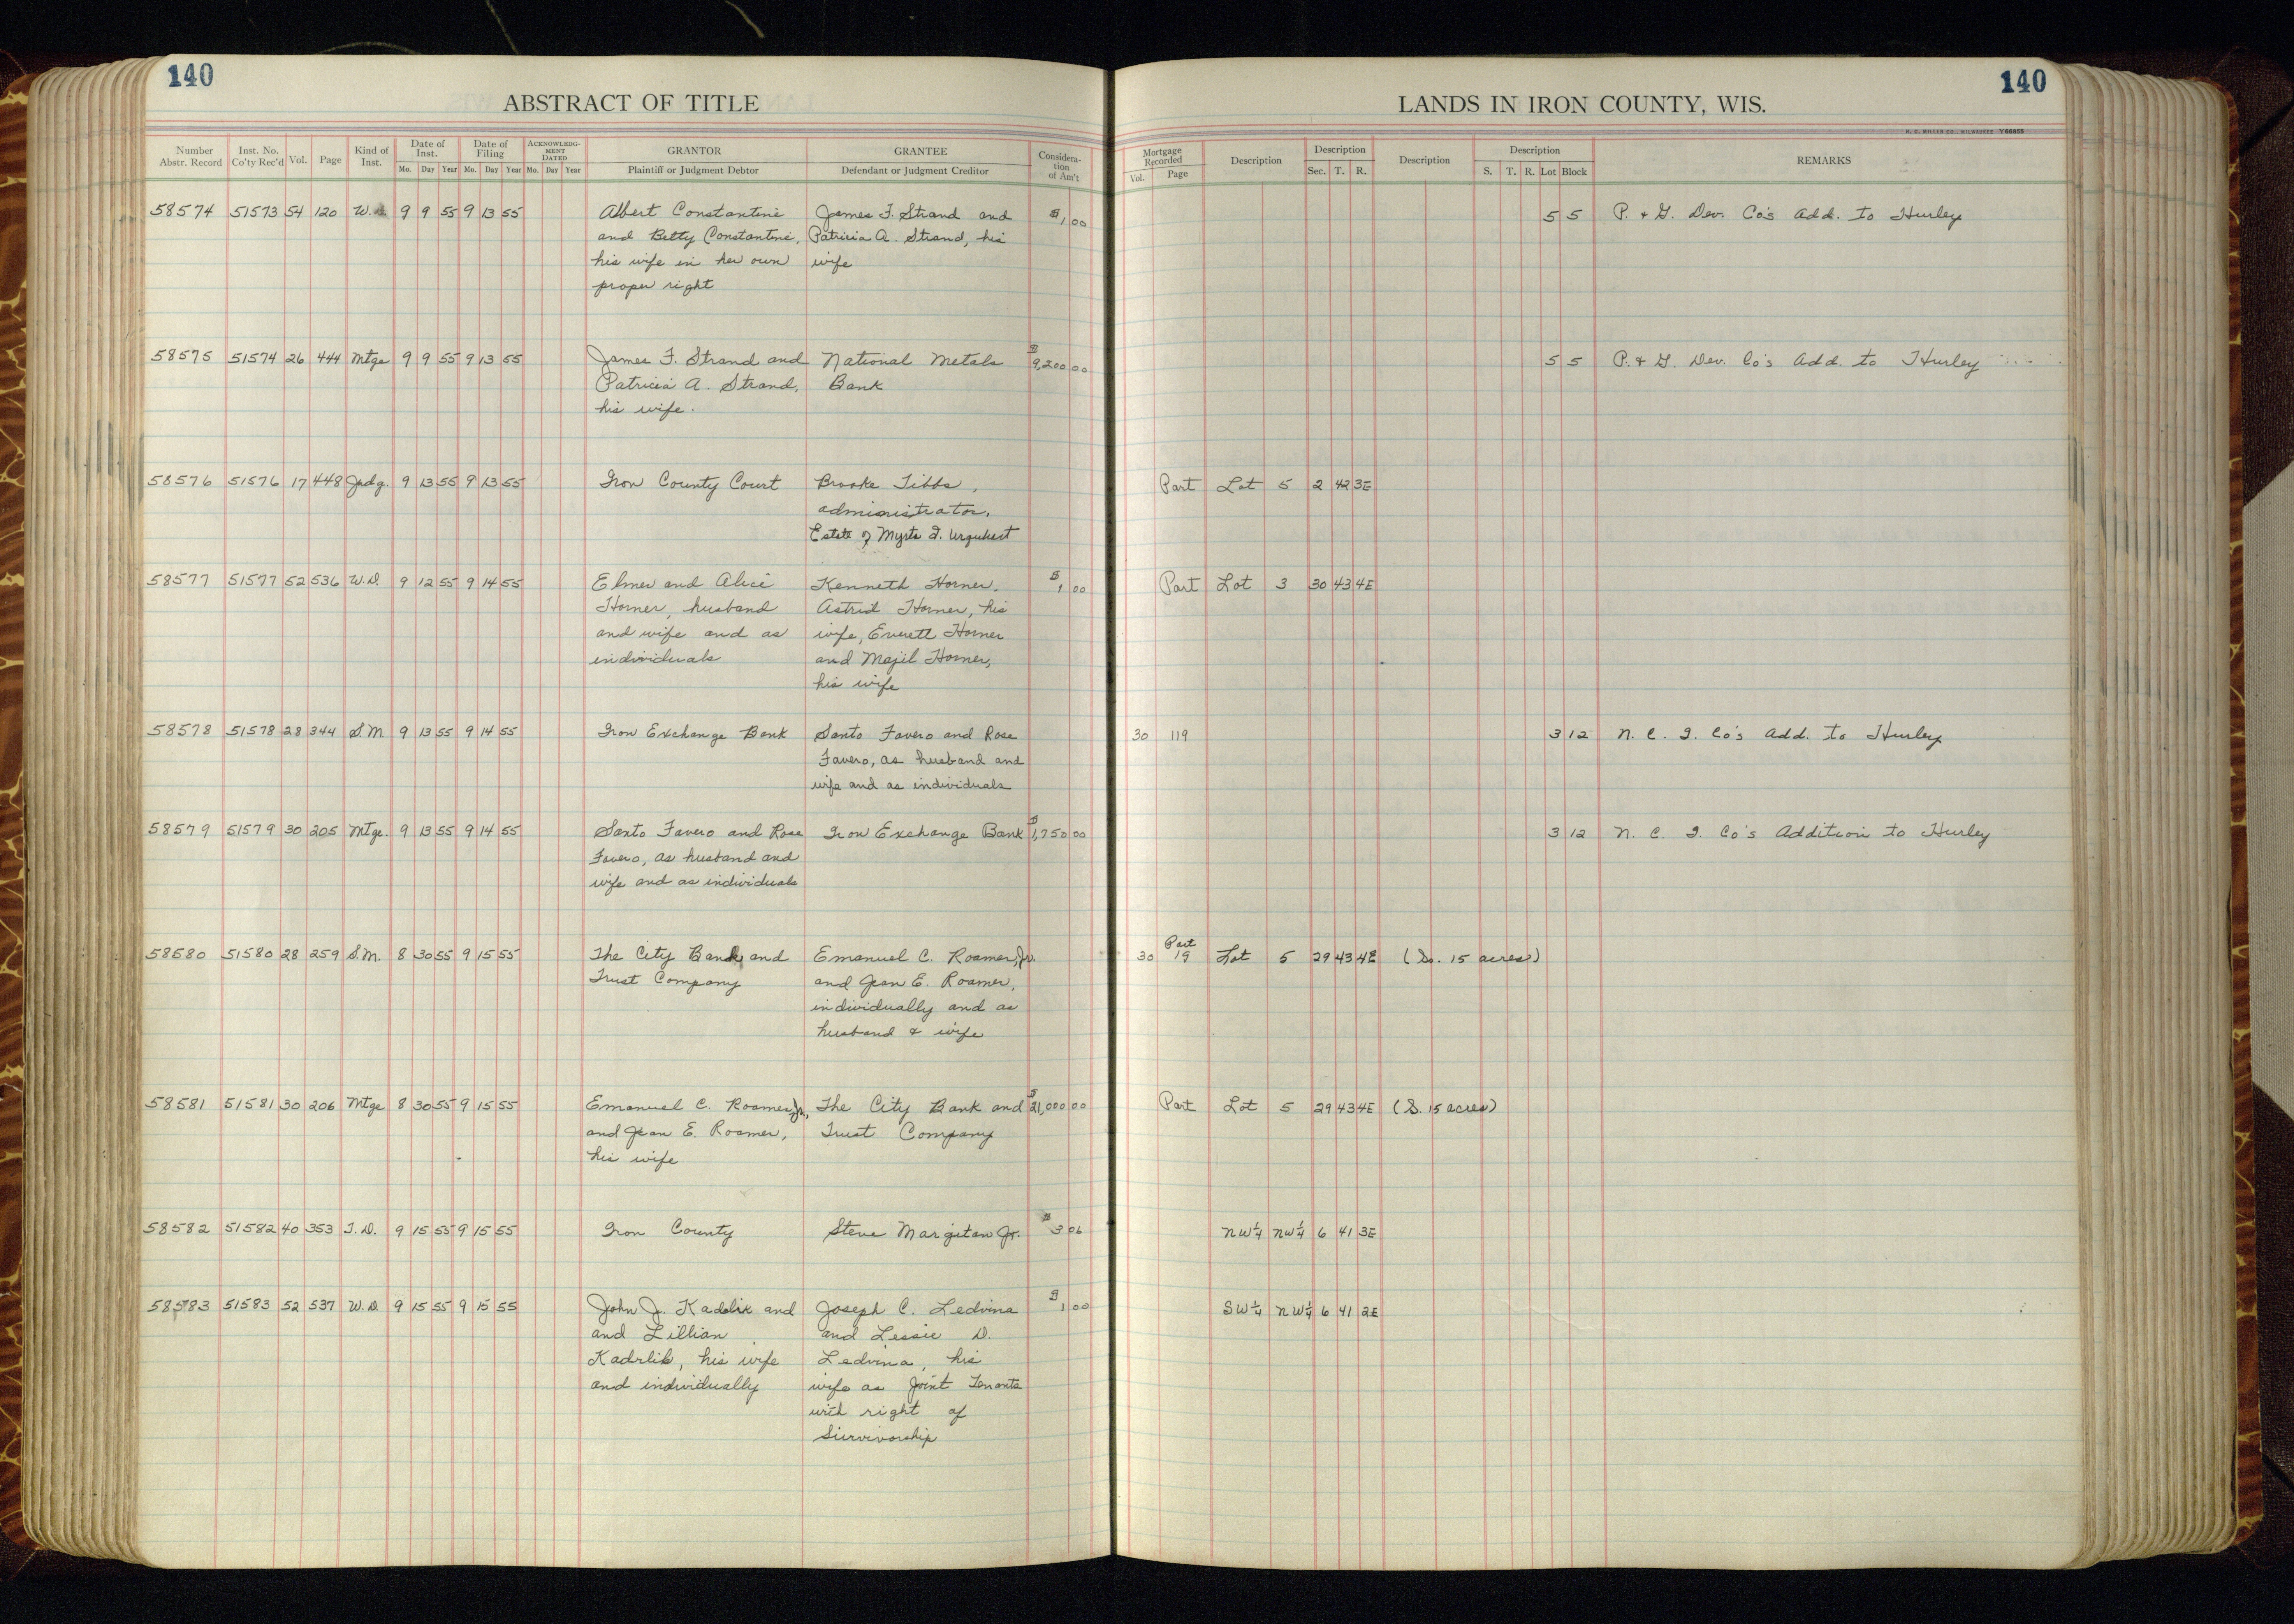 140
ABSTRACT OF TITLE
Number Abstr. Record Inst. No. Co'ty Rec'd Vol. Page Kind of Inst. Date of Inst. Date of Filing ACKNOWLEDGMENT DATED GRANTOR GRANTEE Consideration of Am't
Mo. Day Year Mo. Day Year Mo. Day Year Plaintiff or Judgment Debtor Defendant or Judgment Creditor
58574 51573 54 120 W. 9 9 55 9 13 55 Albert Constantini James F. Strand and $1 00
and Betty Constantini, Patricia A. Strand, his
his wife in her own wife
proper right
58575 51574 26 444 Mtge 9 9 55 9 13 55 James F. Strand and National Metals $9,200 00
Patricia A. Strand, Bank
his wife.
58576 51576 17 448 Judg. 9 13 55 9 13 55 Iron County Court Brooke Tibbs,
administrator,
Estate of Myrta I. Urquhart
58577 51577 52 536 W.D. 9 12 55 9 14 55 Elmer and Alice Kenneth Horner, $1 00
Horner, husband Astrid Horner, his
and wife and as wife, Everett Horner
individuals and Majil Horner,
his wife
58578 51578 28 344 S.M. 9 13 55 9 14 55 Iron Exchange Bank Santo Favero and Rose
Favero, as husband and
wife and as individuals
58579 51579 30 205 Mtge. 9 13 55 9 14 55 Santo Favero and Rose Iron Exchange Bank $1,750 00
Favero, as husband and
wife and as individuals
58580 51580 28 259 S.M. 8 30 55 9 15 55 The City Bank and Emanuel C. Roamer, Jr.
Trust Company and Jean E. Roamer,
individually and as
husband & wife
58581 51581 30 206 Mtge 8 30 55 9 15 55 Emanuel C. Roamer, Jr., The City Bank and $21,000 00
and Jean E. Roamer, Trust Company
his wife
58582 51582 40 353 T.D. 9 15 55 9 15 55 Iron County Steve Margitan Jr. $3 06
58583 51583 52 537 W.D 9 15 55 9 15 55 John J. Kadrlik and Joseph C. Ledvina $1 00
and Lillian and Lessie D.
Kadrlik, his wife Ledvina, his
and individually wife as Joint Tenants
with right of
Survivorship
140
LANDS IN IRON COUNTY, WIS.
H. C. MILLER CO., MILWAUKEE Y66655
Mortgage Recorded Description Description Description Description REMARKS
Vol. Page Sec. T. R. S. T. R. Lot Block
5 5 P. & G. Dev. Co's Add. to Hurley
5 5 P. & G. Dev. Co's Add. to Hurley
Part Lot 5 2 42 3E
Part Lot 3 30 43 4E
30 119 3 12 N. C. I. Co's Add. to Hurley
3 12 N. C. I. Co's Addition to Hurley
30 Part 19 Lot 5 29 43 4E (So. 15 acres)
Part Lot 5 29 43 4E (S. 15 acres)
NW¼ NW¼ 6 41 3E
SW¼ NW¼ 6 41 2E